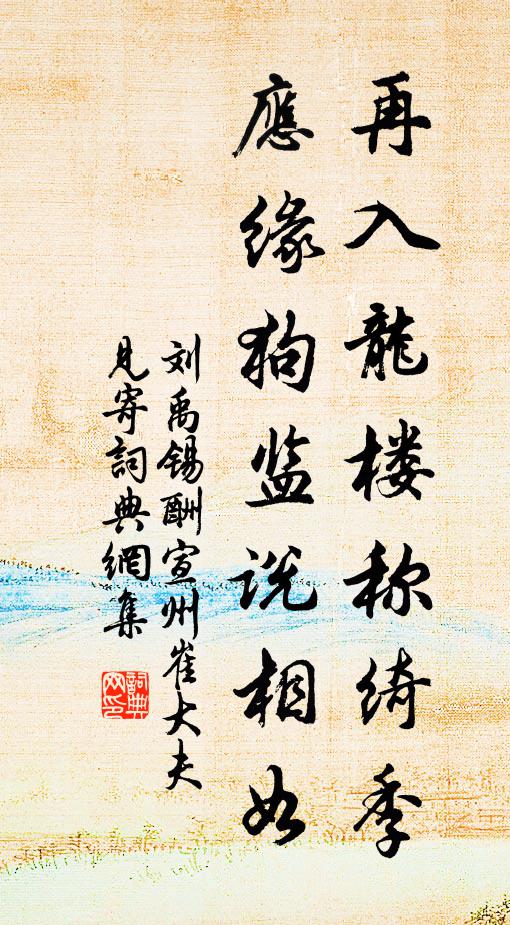 再入龍楼称绮季
應缘狗监说相如
刘禹锡酬宣州崔大夫
見寄詞典網集
詞典网印